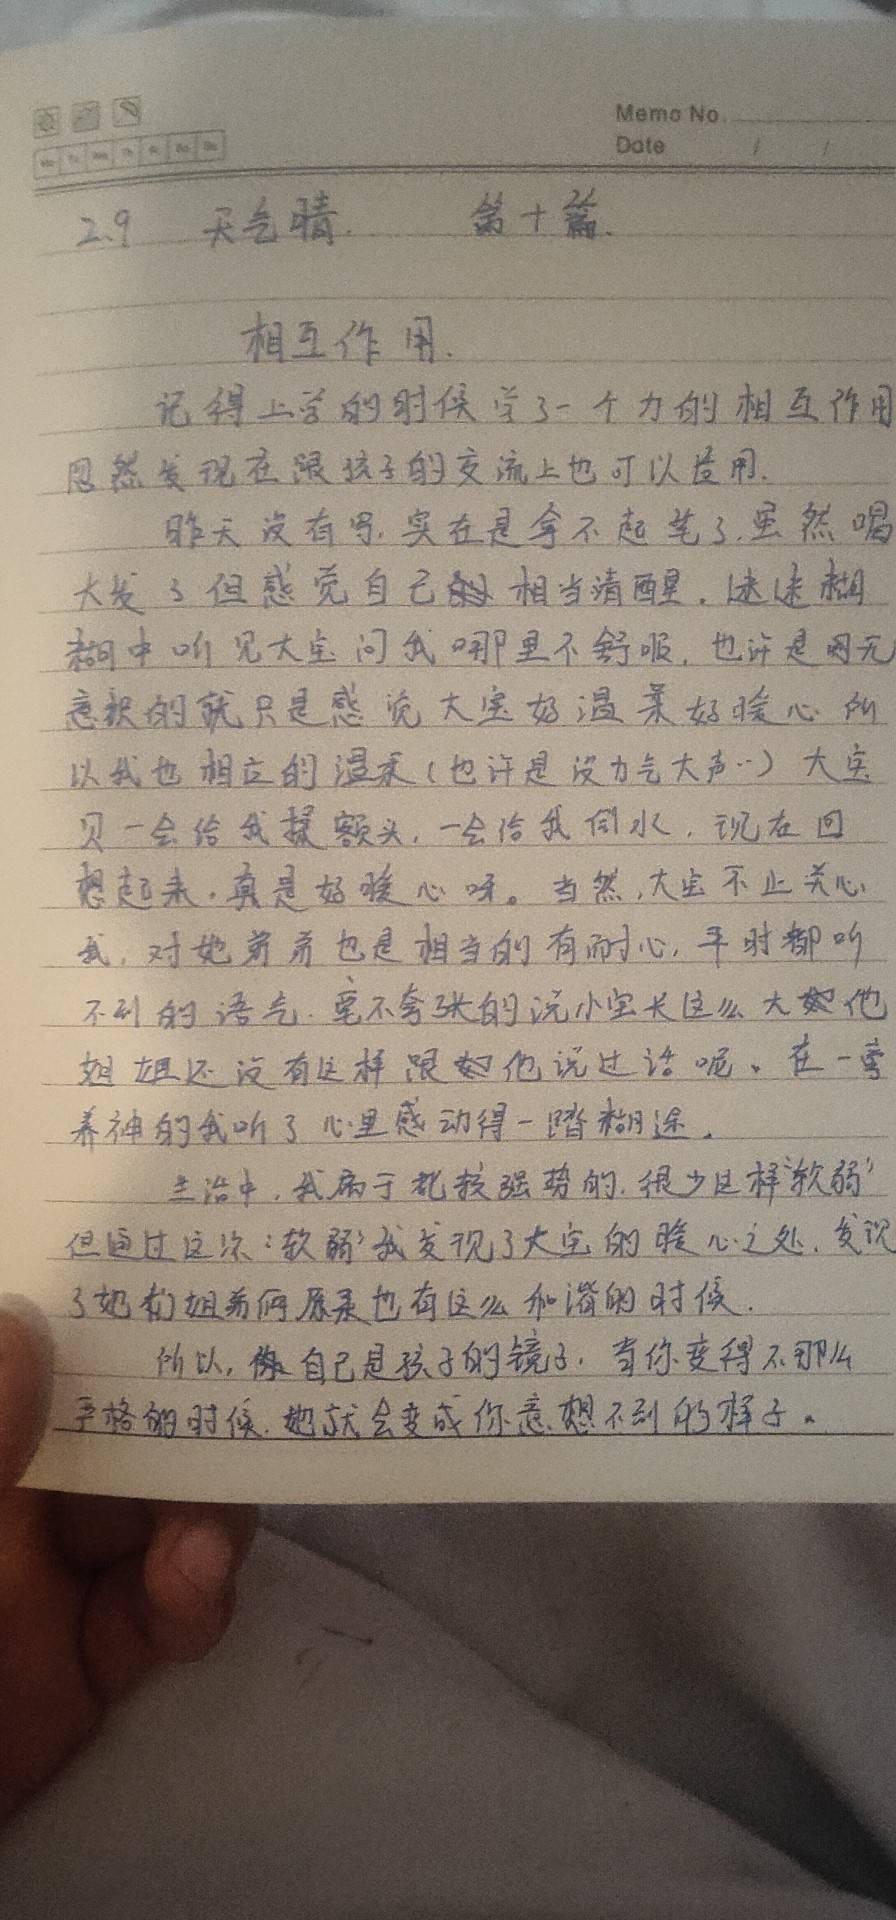 Memo No.
Date / /
2.9 天气晴. 第十篇.
相互作用.
记得上学的时候学了一个力的相互作用
忽然发现在跟孩子的交流上也可以适用.
昨天没有写.实在是拿不起笔了.虽然喝
大发了但感觉自己相当清醒.迷迷糊
糊中听见大宝问我哪里不舒服,也许是因无
意识的就只是感觉大宝好温柔好暖心所
以我也相应的温柔(也许是没力气大声..)大宝
贝一会给我揉额头,一会给我倒水,现在回
想起来.真是好暖心呀。当然,大宝不止关心
我,对她弟弟也是相当的有耐心,平时都听
不到的语气.毫不夸张的说小宝长这么大他
姐姐还没有这样跟他说过话呢。在一旁
养神的我听了心里感动得一踏糊涂.
生活中,我属于比较强势的.很少这样'软弱'
但通过这次'软弱'我发现了大宝的暖心之处.发现
了她们姐弟俩原来也有这么和谐的时候.
所以,自己是孩子的镜子,当你变得不那么
严格的时候.她就会变成你意想不到的样子。